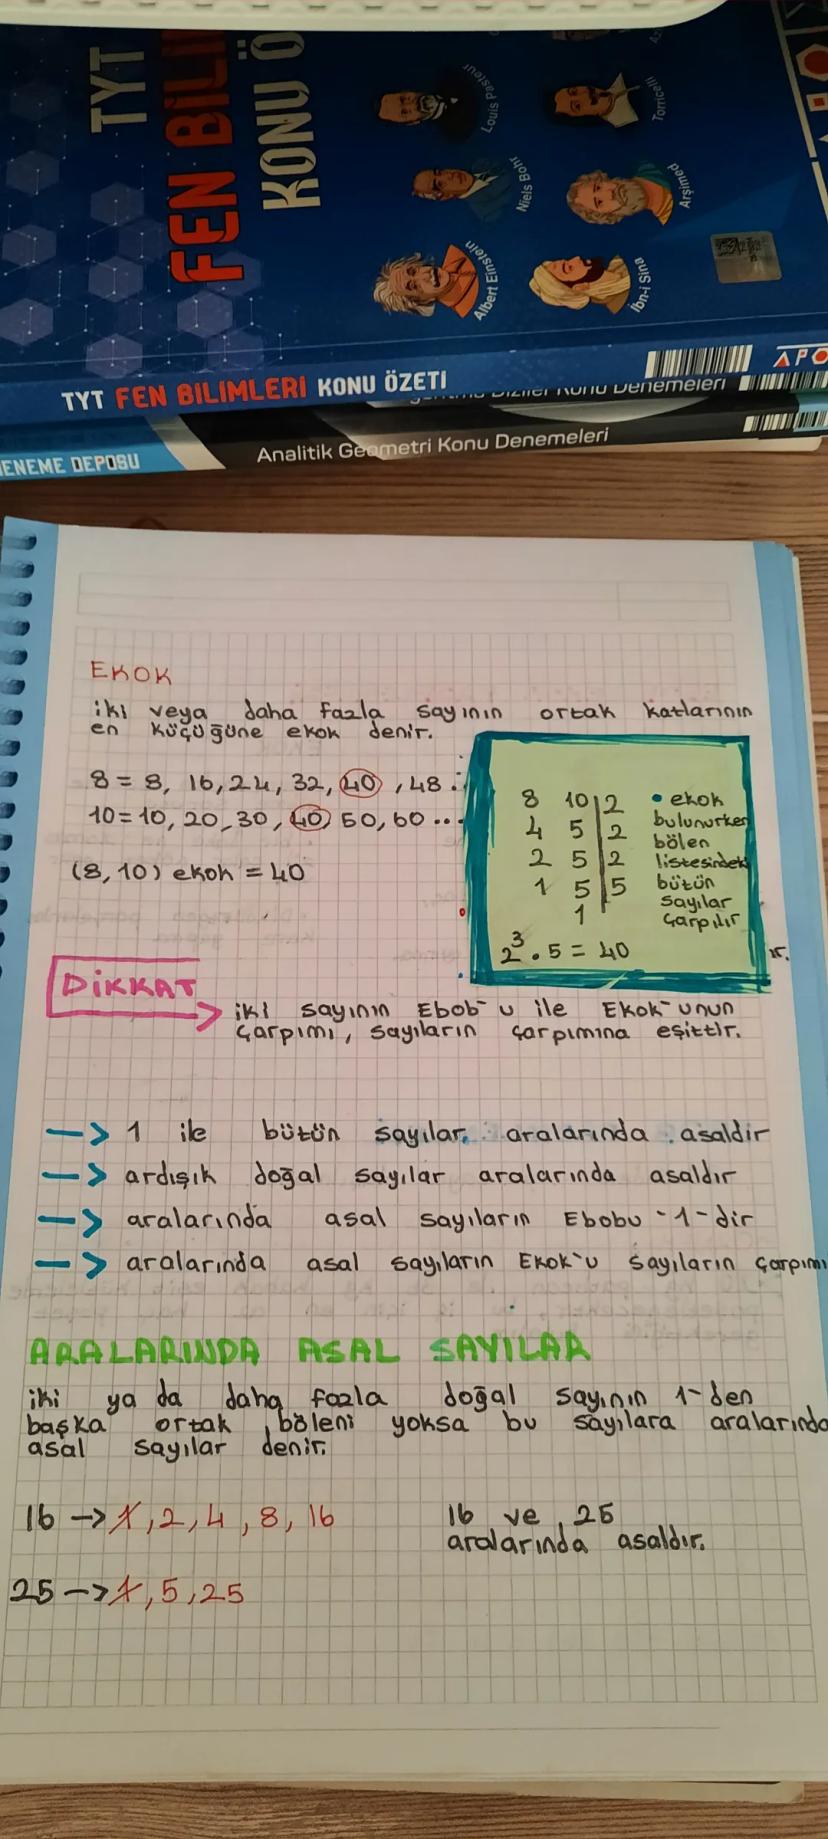 TYT
FEN BİLİ
KONU Ö
Louis Pasteur
Torricelli
Niels Bohr
Arşimed
Albert Einstein
İbn-i Sina
TYT FEN BİLİMLERİ KONU ÖZETİ
APO
Diziler Konu Denemeleri
DENEME DEPOSU
Analitik Geometri Konu Denemeleri
EKOK
iki veya daha fazla sayının ortak katlarının
en küçüğüne ekok denir.
8 = 8, 16, 24, 32, 40, 48 ..
10 = 10, 20, 30, 40, 50, 60 ...
(8, 10) ekok = 40
8 10 | 2
4 5 | 2
2 5 | 2
1 5 | 5
1
2³ . 5 = 40
• ekok
bulunurken
bölen
listesindeki
bütün
sayılar
çarpılır
DİKKAT
iki sayının Ebob-u ile Ekok-unun
çarpımı, sayıların çarpımına eşittir.
—> 1 ile bütün sayılar aralarında asaldir
—> ardışık doğal sayılar aralarında asaldır
—> aralarında asal sayıların Ebobu -1- dir
—> aralarında asal sayıların Ekok'u sayıların çarpımı
ARALARINDA ASAL SAYILAR
iki ya da daha fazla doğal sayının 1-den
başka ortak böleni yoksa bu sayılara aralarında
asal sayılar denir.
16 -> 1, 2, 4, 8, 16
16 ve 25
aralarında asaldır.
25 -> 1, 5, 25